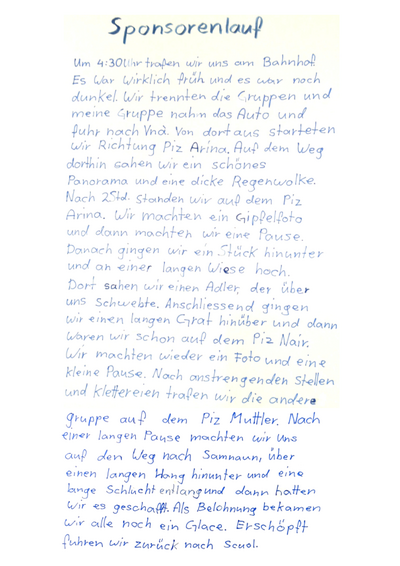 Sponsorenlauf
Um 4:30Uhr trafen wir uns am Bahnhof.
Es war wirklich früh und es war noch
dunkel. Wir trennten die Gruppen und
meine Gruppe nahm das Auto und
fuhr nach Vnà. Von dort aus starteten
wir Richtung Piz Arina. Auf dem Weg
dorthin sahen wir ein schönes
Panorama und eine dicke Regenwolke.
Nach 2Std. standen wir auf dem Piz
Arina. Wir machten ein Gipfelfoto
und dann machten wir eine Pause.
Danach gingen wir ein Stück hinunter
und an einer langen Wiese hoch.
Dort sahen wir einen Adler, der über
uns schwebte. Anschliessend gingen
wir einen langen Grat hinüber und dann
waren wir schon auf dem Piz Nair.
Wir machten wieder ein Foto und eine
kleine Pause. Nach anstrengenden Stellen
und Klettereien trafen wir die andere
gruppe auf dem Piz Muttler. Nach
einer langen Pause machten wir uns
auf den Weg nach Samnaun, über
einen langen Hang hinunter und eine
lange Schlucht entlang und dann hatten
wir es geschafft. Als Belohnung bekamen
wir alle noch ein Glace. Erschöpft
fuhren wir zurück nach Scuol.